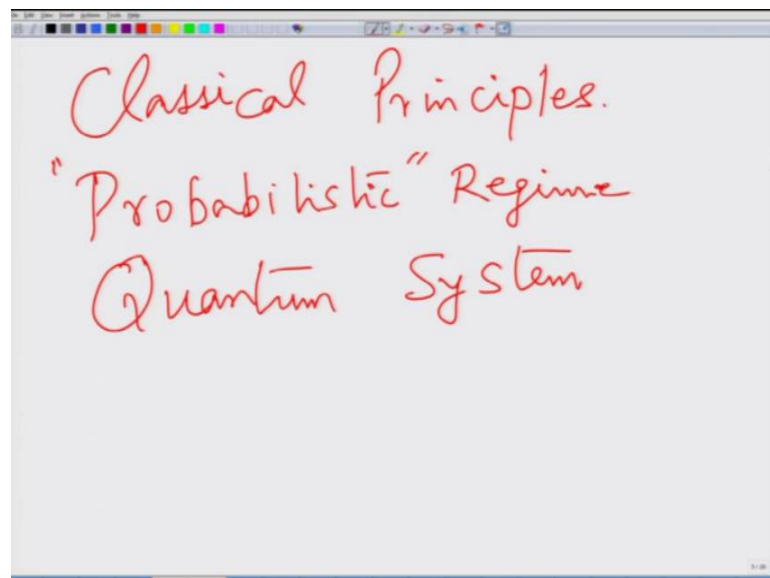 Classical Principles.
"Probabilistic" Regime
Quantum System